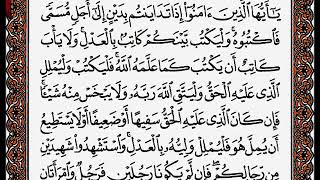 يَـٰٓأَيُّهَا ٱلَّذِينَ ءَامَنُوٓا۟ إِذَا تَدَايَنتُم بِدَيْنٍ إِلَىٰٓ أَجَلٍ مُّسَمًّى
فَٱكْتُبُوهُ وَلْيَكْتُب بَّيْنَكُمْ كَاتِبٌۢ بِٱلْعَدْلِ وَلَا يَأْبَ
كَاتِبٌ أَن يَكْتُبَ كَمَا عَلَّمَهُ ٱللَّهُ فَلْيَكْتُبْ وَلْيُمْلِلِ
ٱلَّذِى عَلَيْهِ ٱلْحَقُّ وَلْيَتَّقِ ٱللَّهَ رَبَّهُۥ وَلَا يَبْخَسْ مِنْهُ شَيْـًٔا
فَإِن كَانَ ٱلَّذِى عَلَيْهِ ٱلْحَقُّ سَفِيهًا أَوْ ضَعِيفًا أَوْ لَا يَسْتَطِيعُ
أَن يُمِلَّ هُوَ فَلْيُمْلِلْ وَلِيُّهُۥ بِٱلْعَدْلِ وَٱسْتَشْهِدُوا۟ شَهِيدَيْنِ
مِن رِّجَالِكُمْ فَإِن لَّمْ يَكُونَا رَجُلَيْنِ فَرَجُلٌ وَٱمْرَأَتَانِ